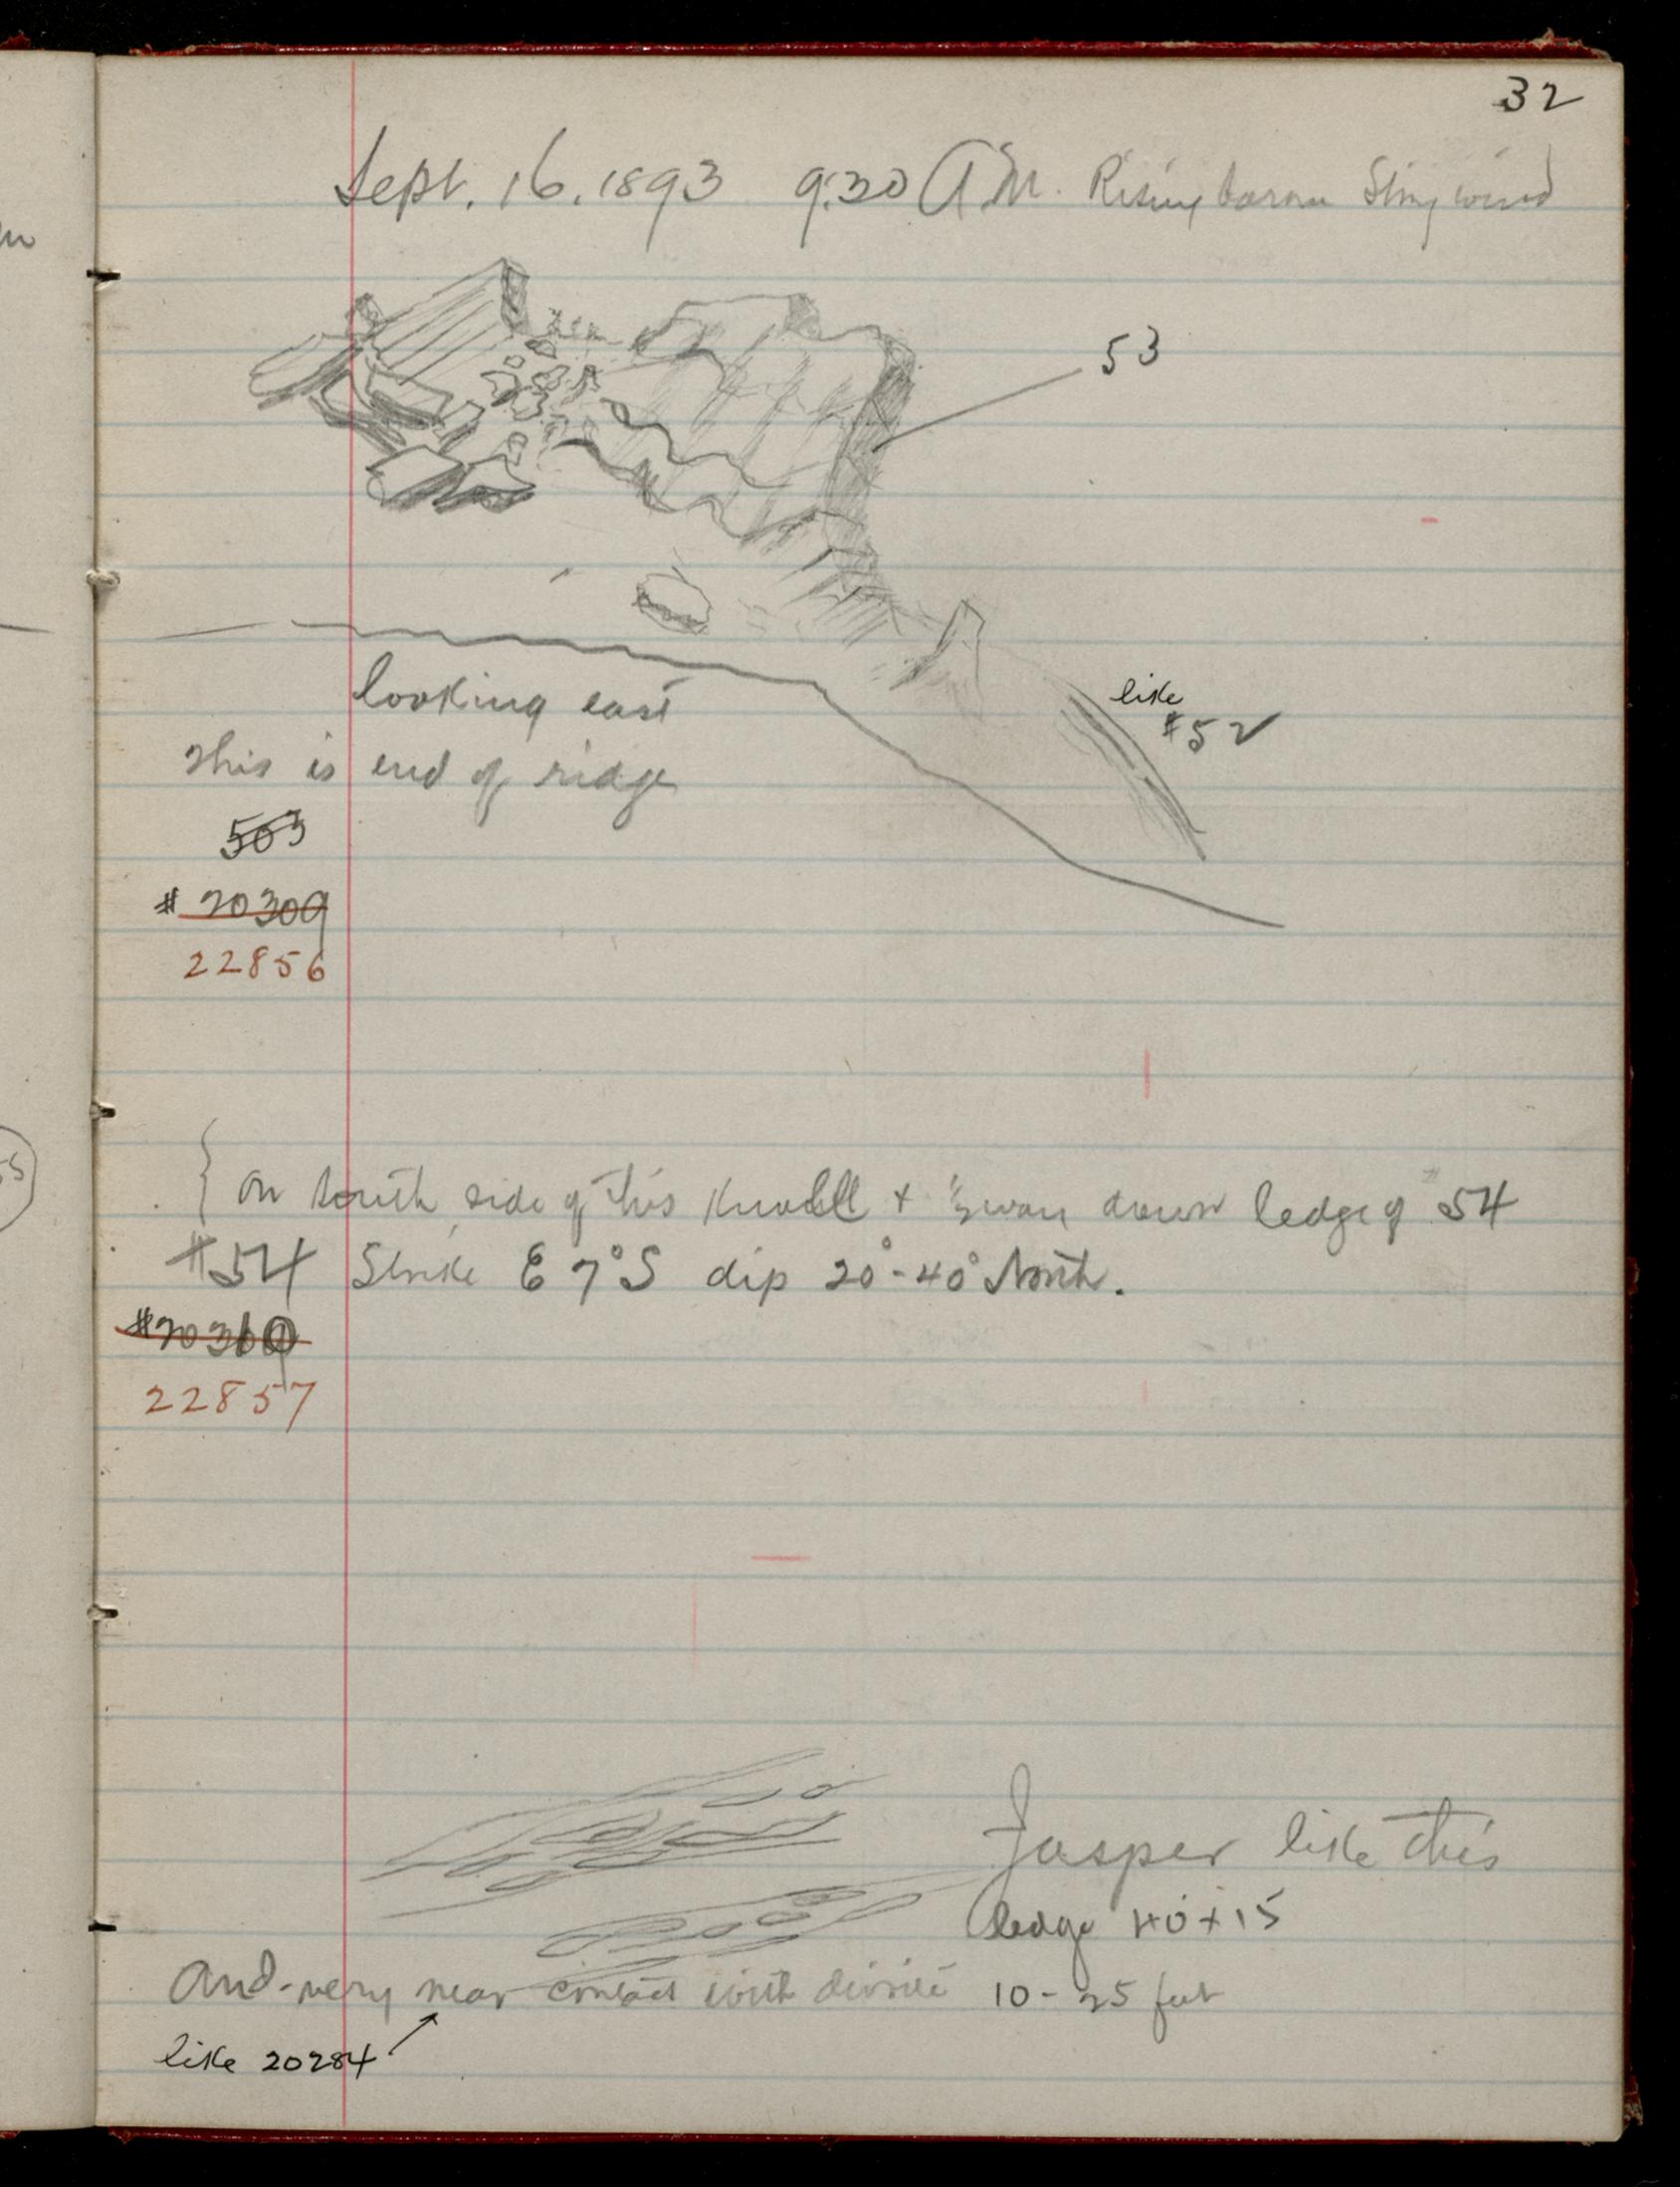 32
Sept. 16. 1893 9:30 A.M. Rising barom Strong wind
53
like
#52
looking east
This is end of ridge
503
# 20309
22856
on South side of this Knobll + 1/3 way down ledge of #54
#54 Strike E 7° S dip 20°-40° North.
#20310
22857
Jasper like this
ledge 40 + 15
And very near contact with diorite 10-25 feet
like 20284